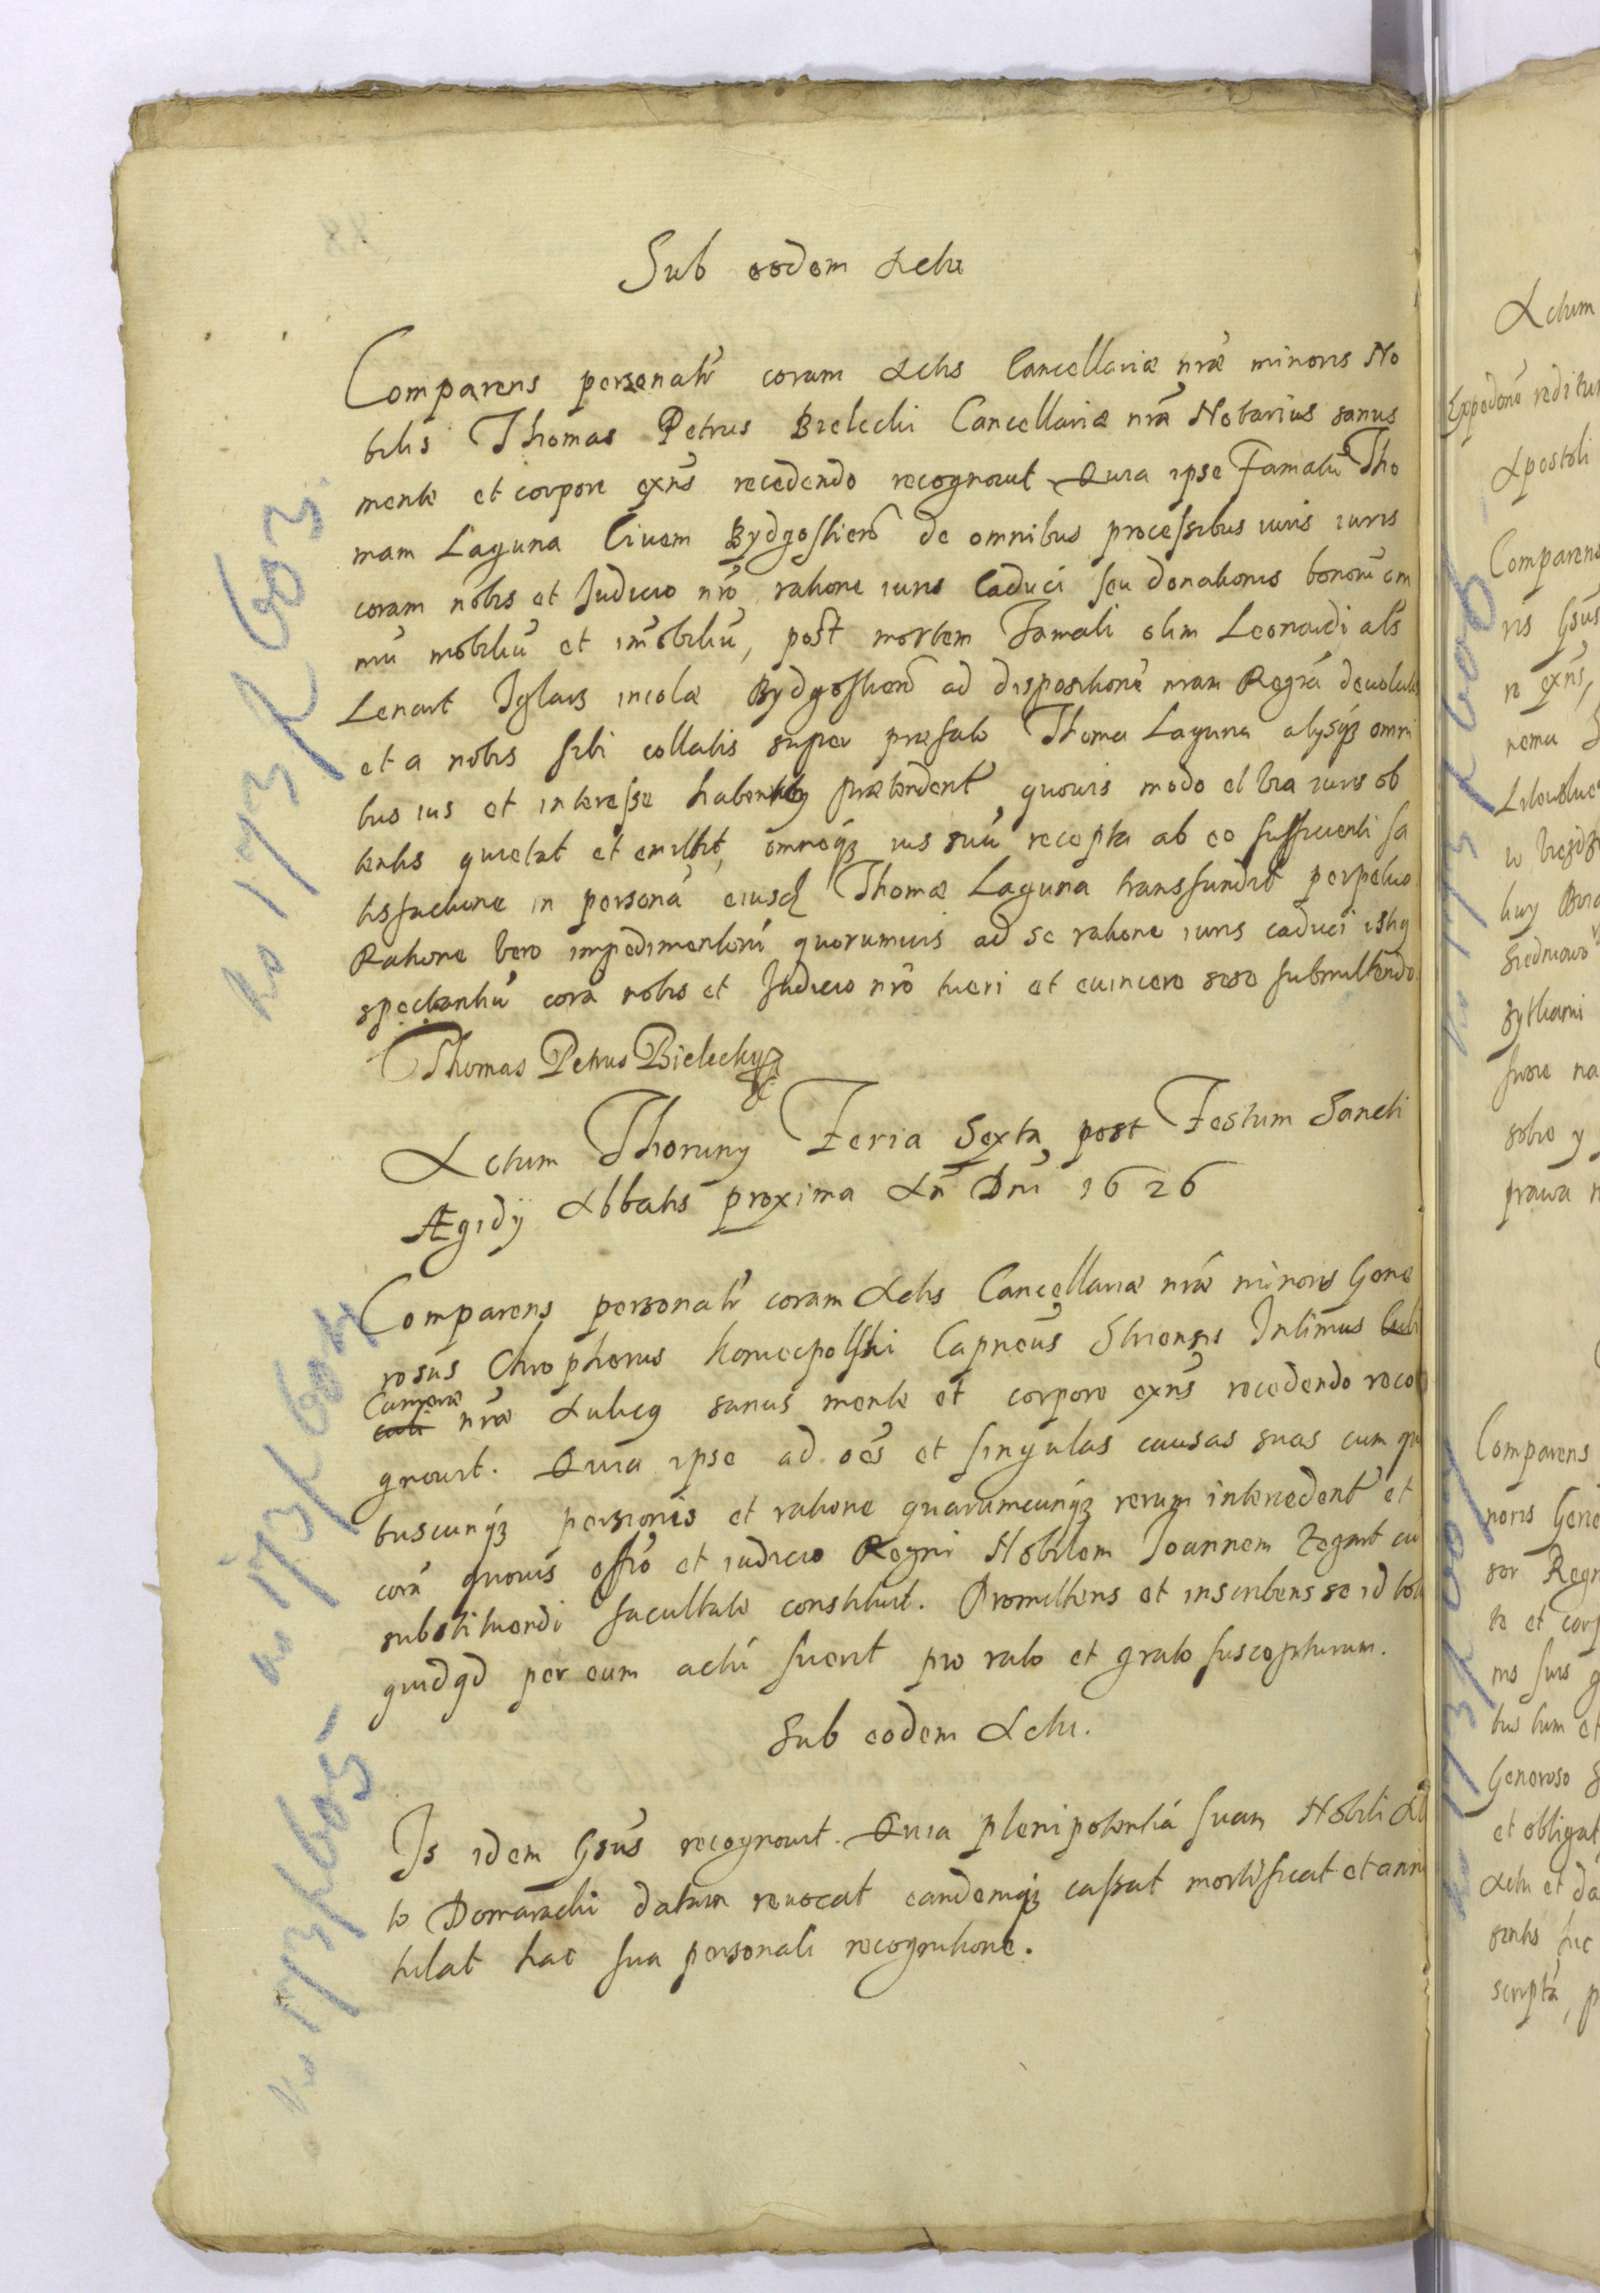 Sub eodem Actu
Comparens personalr̃ coram Actis Cancellariæ nræ minoris No
bilis Thomas Petrus Bielecki Cancellariæ nrã Notarius sanus
mente et corpore exn̄s recedendo recognouit Quia ipse Famatũ Tho
mam Laguna Ciuem Bydgostien̄ de omnibus processibus iuris iuris
coram nobis et Judicio nrõ ratione iuris Caduci seu donationis bonorũ om
niũ mobiliũ et im̄obiliũ, post mortem Famati olim Leonardi als
Lenart Iglarz incolæ Bydgostien̄ ad dispositionẽ nram Regiã deuolutis
et a nobis sibi collatis super præfato Thoma Laguna alysq₃ omni
bus ius et interesse habentibus prætendent̃ quouis modo et via iuris ob
tentis quietat et emittit, omneq₃ ius suũ recepta ab eo sufficienti sa
tisfactione in personã eiusd Thomæ Laguna transfundit perpetuo
Ratione vero impedimentorũ quorumuis ad se ratione iuris caduci istius
spectantiũ corã nobis et Judicio nrõ tueri et euincere sese submittendo
Thomas Petrus Bielecky
Actum Thoruny Feria Sexta post Festum Sancti
Ægidÿ Abbatis proxima An̄ Dnĩ 1626
Comparens personalr̃ coram Actis Cancellariæ nræ minoris Gene
rosus Chrõphorus Koniecpolski Capneũs Striensis Intimus Cubi
Cameræ
culi nræ Aulicus sanus mente et corpore exn̄s recedendo reco
gnouit. Quia ipse ad oẽs et singulas causas suas cum qui
buscunq₃ personis et ratione quarumcunq₃ rerum intercedent̃ et
corã quouis offõ et iudicio Regni Nobilem Joannem Zegart cu
substituendi facultate constituit. Promittens et inscribens se id totũ
quidqd per eum actũ fuerit pro rato et grato suscepturum.
Sub eodem Actu.
Is idem Gsũs recognouit. Quia plenipotentiã suam Nobili
to Domaracki datam reuocat eandemq₃ cassat mortificat et anni
hilat hac sua personali recognitione.
173/603
173/604
173/605
Actum
Apostoli
Comparens
ris Gsũs
re exn̄s,
prawa n
Comparens
noris Gene
sor Regn
te et corp
Generoso
et obligat
Actu et da
scriptã, p